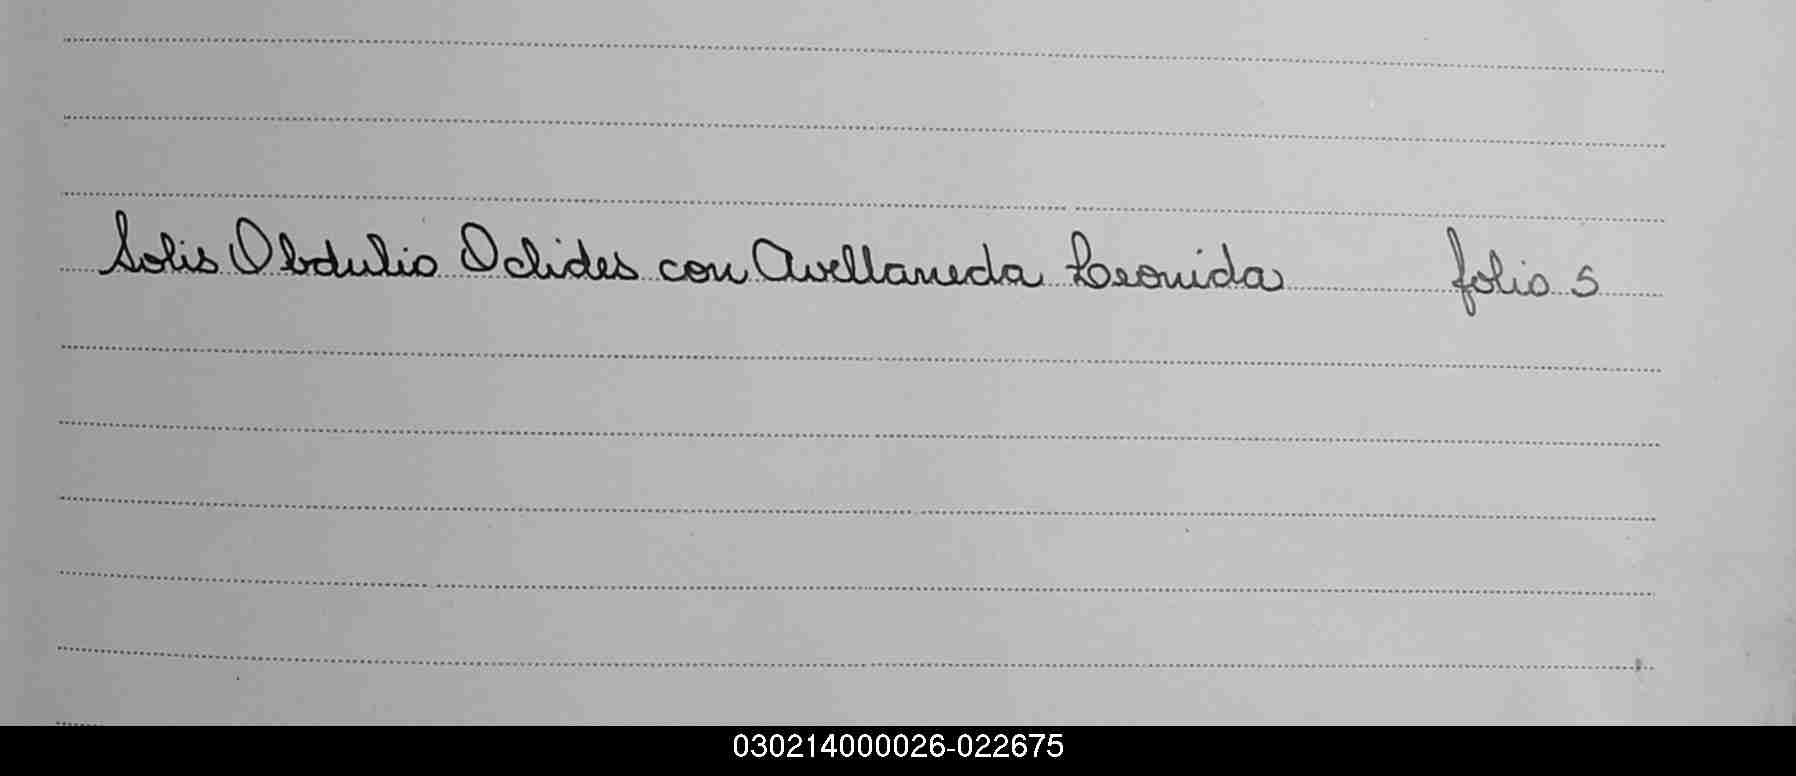 Solis Obdulio Oclides con Avellaneda Leonida folio 5
030214000026-022675